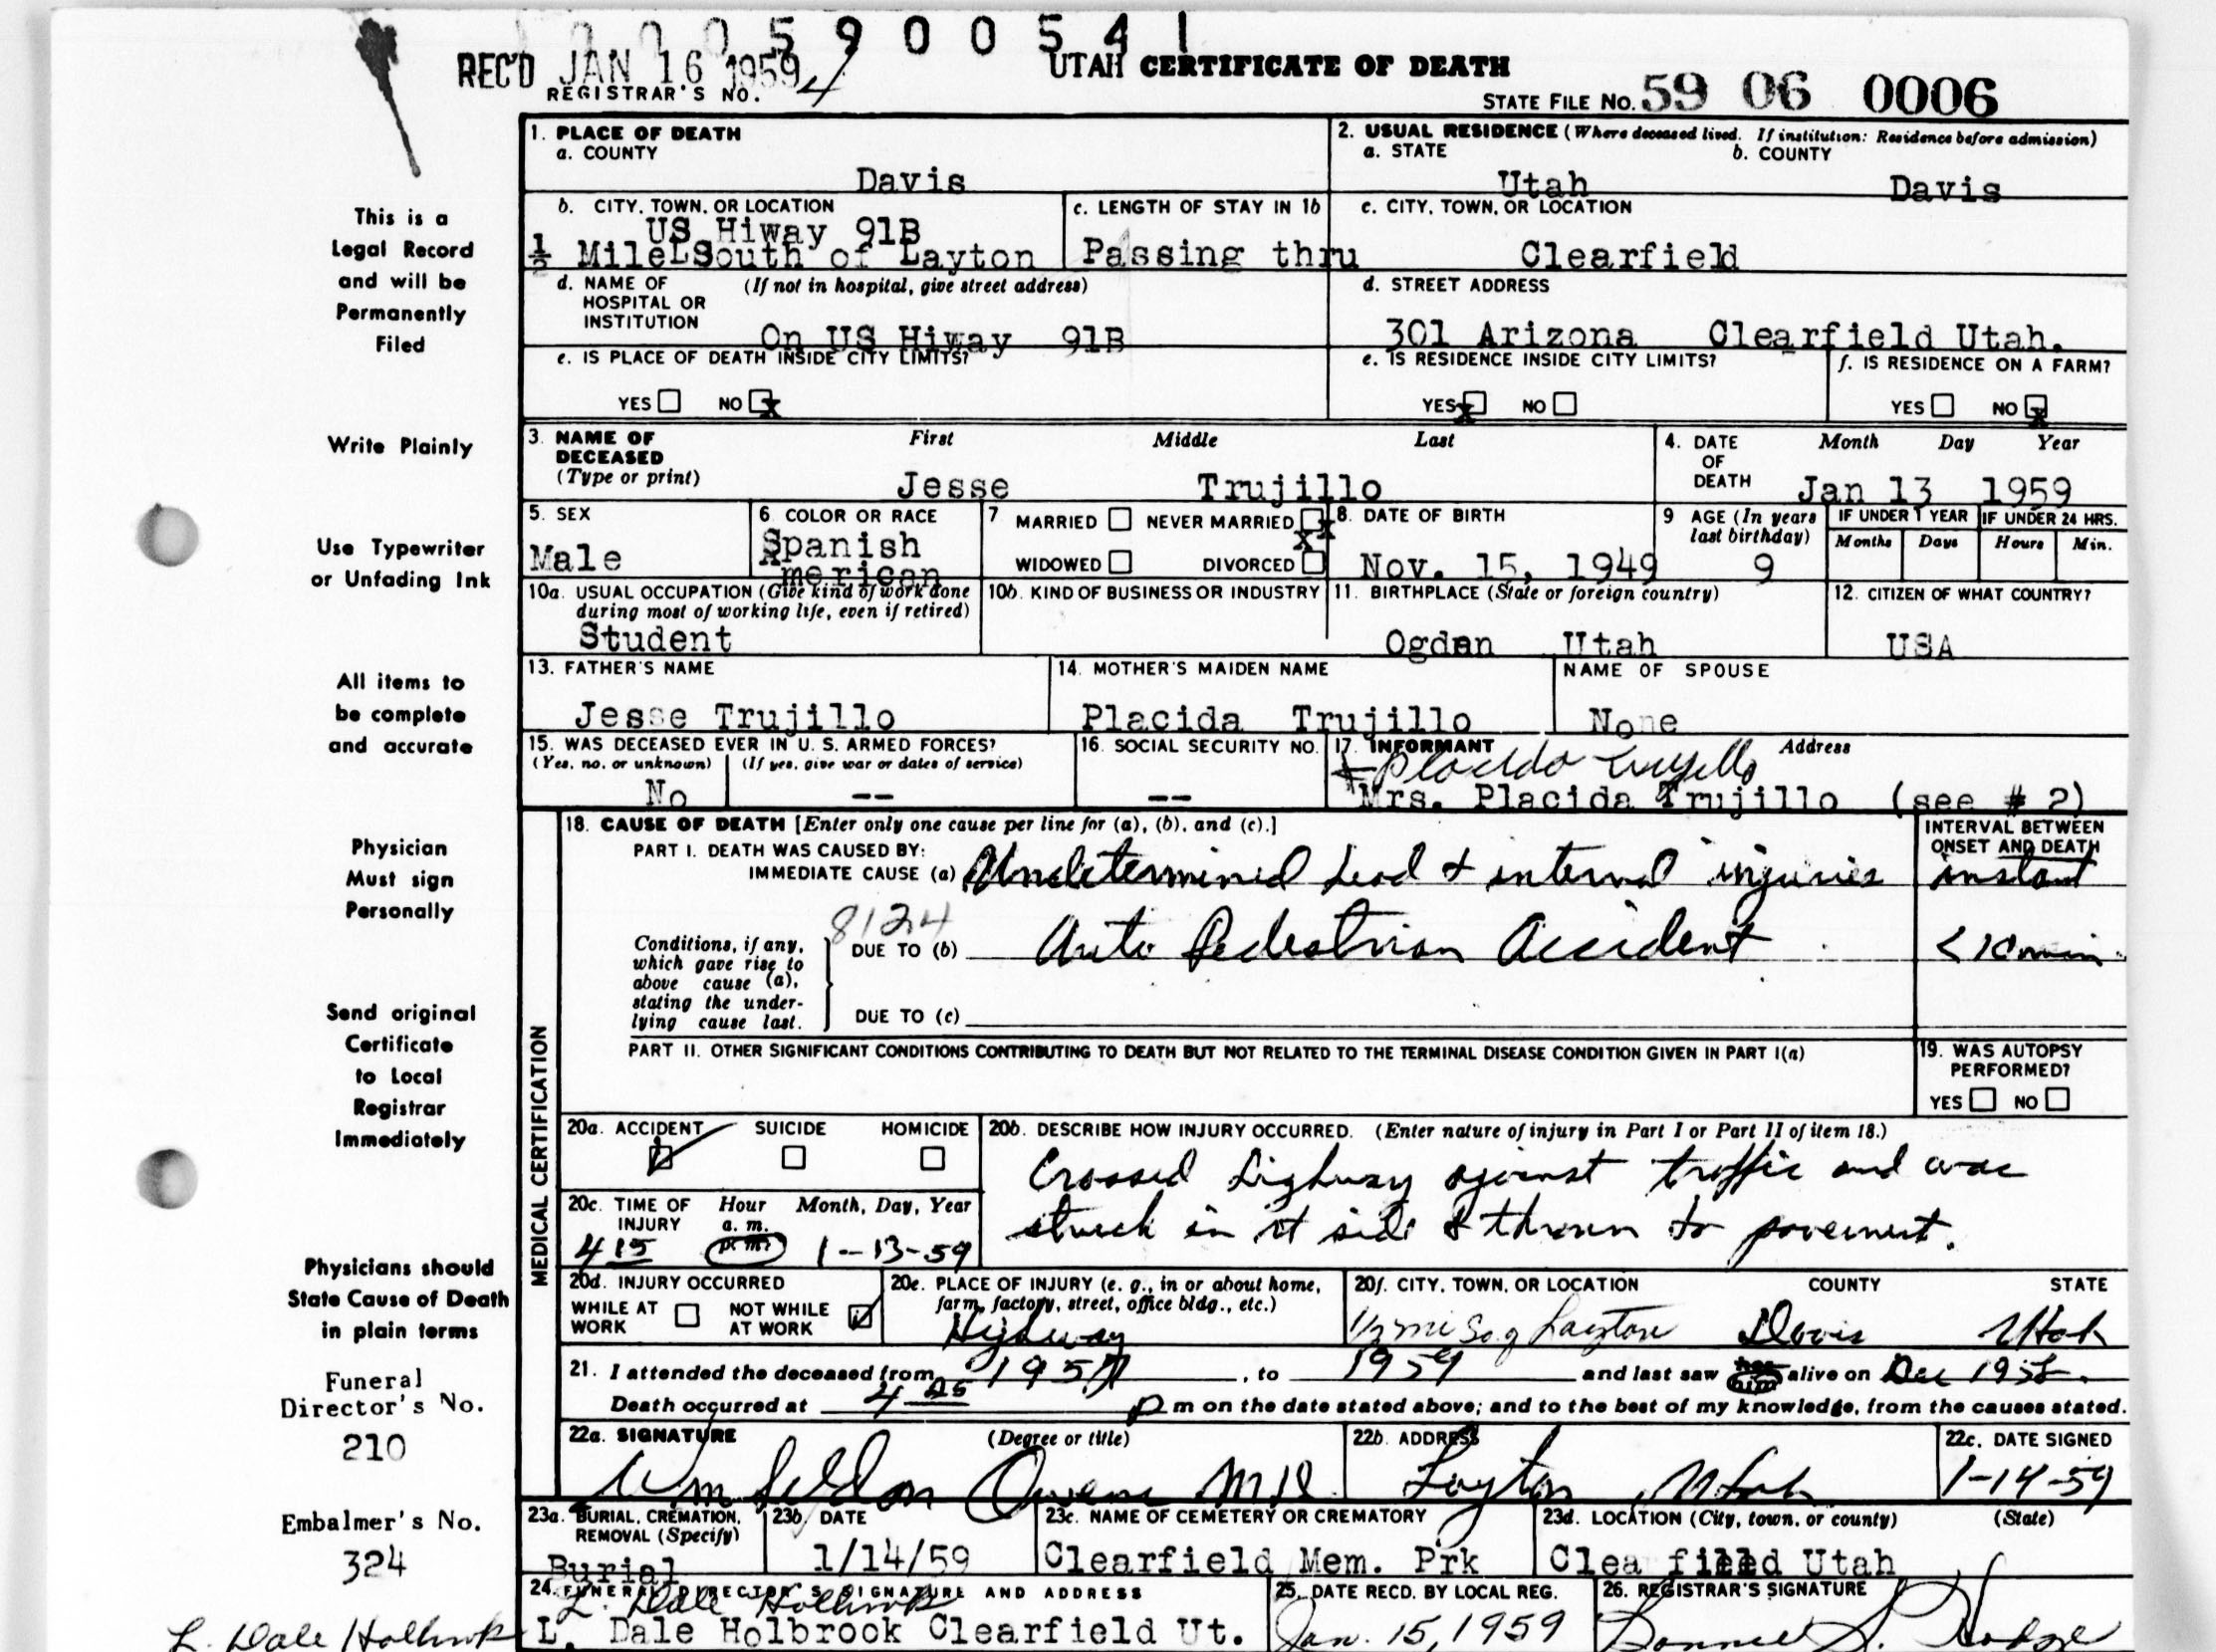 1 0 0 0 5 9 0 0 5 4 1
REC'D JAN 16 1959
REGISTRAR'S NO. 4
UTAH CERTIFICATE OF DEATH
STATE FILE NO. 59 06 0006
1. PLACE OF DEATH
a. COUNTY
Davis
2. USUAL RESIDENCE (Where deceased lived. If institution: Residence before admission)
a. STATE b. COUNTY
Utah Davis
b. CITY, TOWN, OR LOCATION
US Hiway 91B
½ Mile South of Layton
c. LENGTH OF STAY IN 1b
Passing thru
c. CITY, TOWN, OR LOCATION
Clearfield
d. NAME OF HOSPITAL OR INSTITUTION (If not in hospital, give street address)
On US Hiway 91B
d. STREET ADDRESS
301 Arizona Clearfield Utah.
e. IS PLACE OF DEATH INSIDE CITY LIMITS?
YES NO x
e. IS RESIDENCE INSIDE CITY LIMITS?
YES x NO
f. IS RESIDENCE ON A FARM?
YES NO x
3. NAME OF DECEASED (Type or print)
First Middle Last
Jesse Trujillo
4. DATE OF DEATH
Month Day Year
Jan 13 1959
5. SEX
Male
6. COLOR OR RACE
Spanish
American
7 MARRIED NEVER MARRIED x
WIDOWED DIVORCED
8. DATE OF BIRTH
Nov. 15, 1949
9 AGE (In years last birthday)
9
IF UNDER 1 YEAR
Months Days
IF UNDER 24 HRS.
Hours Min.
10a. USUAL OCCUPATION (Give kind of work done during most of working life, even if retired)
Student
10b. KIND OF BUSINESS OR INDUSTRY
11. BIRTHPLACE (State or foreign country)
Ogden Utah
12. CITIZEN OF WHAT COUNTRY?
USA
13. FATHER'S NAME
Jesse Trujillo
14. MOTHER'S MAIDEN NAME
Placida Trujillo
NAME OF SPOUSE
None
15. WAS DECEASED EVER IN U. S. ARMED FORCES?
(Yes, no, or unknown) (If yes, give war or dates of service)
No --
16. SOCIAL SECURITY NO.
--
17. INFORMANT Address
Placida Trujillo
Mrs. Placida Trujillo (see # 2)
MEDICAL CERTIFICATION
18. CAUSE OF DEATH [Enter only one cause per line for (a), (b), and (c).]
INTERVAL BETWEEN ONSET AND DEATH
PART I. DEATH WAS CAUSED BY:
IMMEDIATE CAUSE (a) Undetermined head & internal injuries instant
8124
Conditions, if any, which gave rise to above cause (a), stating the underlying cause last.
DUE TO (b) Auto Pedestrian Accident < 10 min.
DUE TO (c)
PART II. OTHER SIGNIFICANT CONDITIONS CONTRIBUTING TO DEATH BUT NOT RELATED TO THE TERMINAL DISEASE CONDITION GIVEN IN PART I(a)
19. WAS AUTOPSY PERFORMED?
YES NO
20a. ACCIDENT SUICIDE HOMICIDE
20b. DESCRIBE HOW INJURY OCCURRED. (Enter nature of injury in Part I or Part II of item 18.)
Crossed highway against traffic and was
struck in rt side & thrown to pavement.
20c. TIME OF INJURY Hour a. m. p. m. Month, Day, Year
4 15 1-13-59
20d. INJURY OCCURRED
WHILE AT WORK NOT WHILE AT WORK
20e. PLACE OF INJURY (e. g., in or about home, farm, factory, street, office bldg., etc.)
Highway
20f. CITY, TOWN, OR LOCATION COUNTY STATE
1/2 mi So. of Layton Davis Utah
21. I attended the deceased from 1957, to 1959 and last saw her him alive on Dec 1958.
Death occurred at 4 25 p m on the date stated above; and to the best of my knowledge, from the causes stated.
22a. SIGNATURE (Degree or title)
Wm Seldon Owens MD
22b. ADDRESS
Layton Utah
22c. DATE SIGNED
1-14-59
23a. BURIAL, CREMATION, REMOVAL (Specify)
Burial
23b. DATE
1/14/59
23c. NAME OF CEMETERY OR CREMATORY
Clearfield Mem. Prk
23d. LOCATION (City, town, or county) (State)
Clea field Utah
24. FUNERAL DIRECTOR'S SIGNATURE AND ADDRESS
L. Dale Holbrook
L. Dale Holbrook Clearfield Ut.
25. DATE RECD. BY LOCAL REG.
Jan. 15, 1959
26. REGISTRAR'S SIGNATURE
Bonnie S. Hodge
This is a
Legal Record
and will be
Permanently
Filed
Write Plainly
Use Typewriter
or Unfading Ink
All items to
be complete
and accurate
Physician
Must sign
Personally
Send original
Certificate
to Local
Registrar
Immediately
Physicians should
State Cause of Death
in plain terms
Funeral
Director's No.
210
Embalmer's No.
324
L. Dale Holbrook